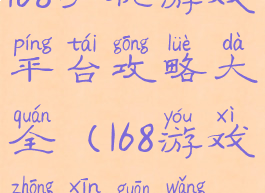 168 游戏
píng tái gōng lüè dà
平台攻略大
quán yóu xì
全（168游戏
zhōng xīn guān wǎng